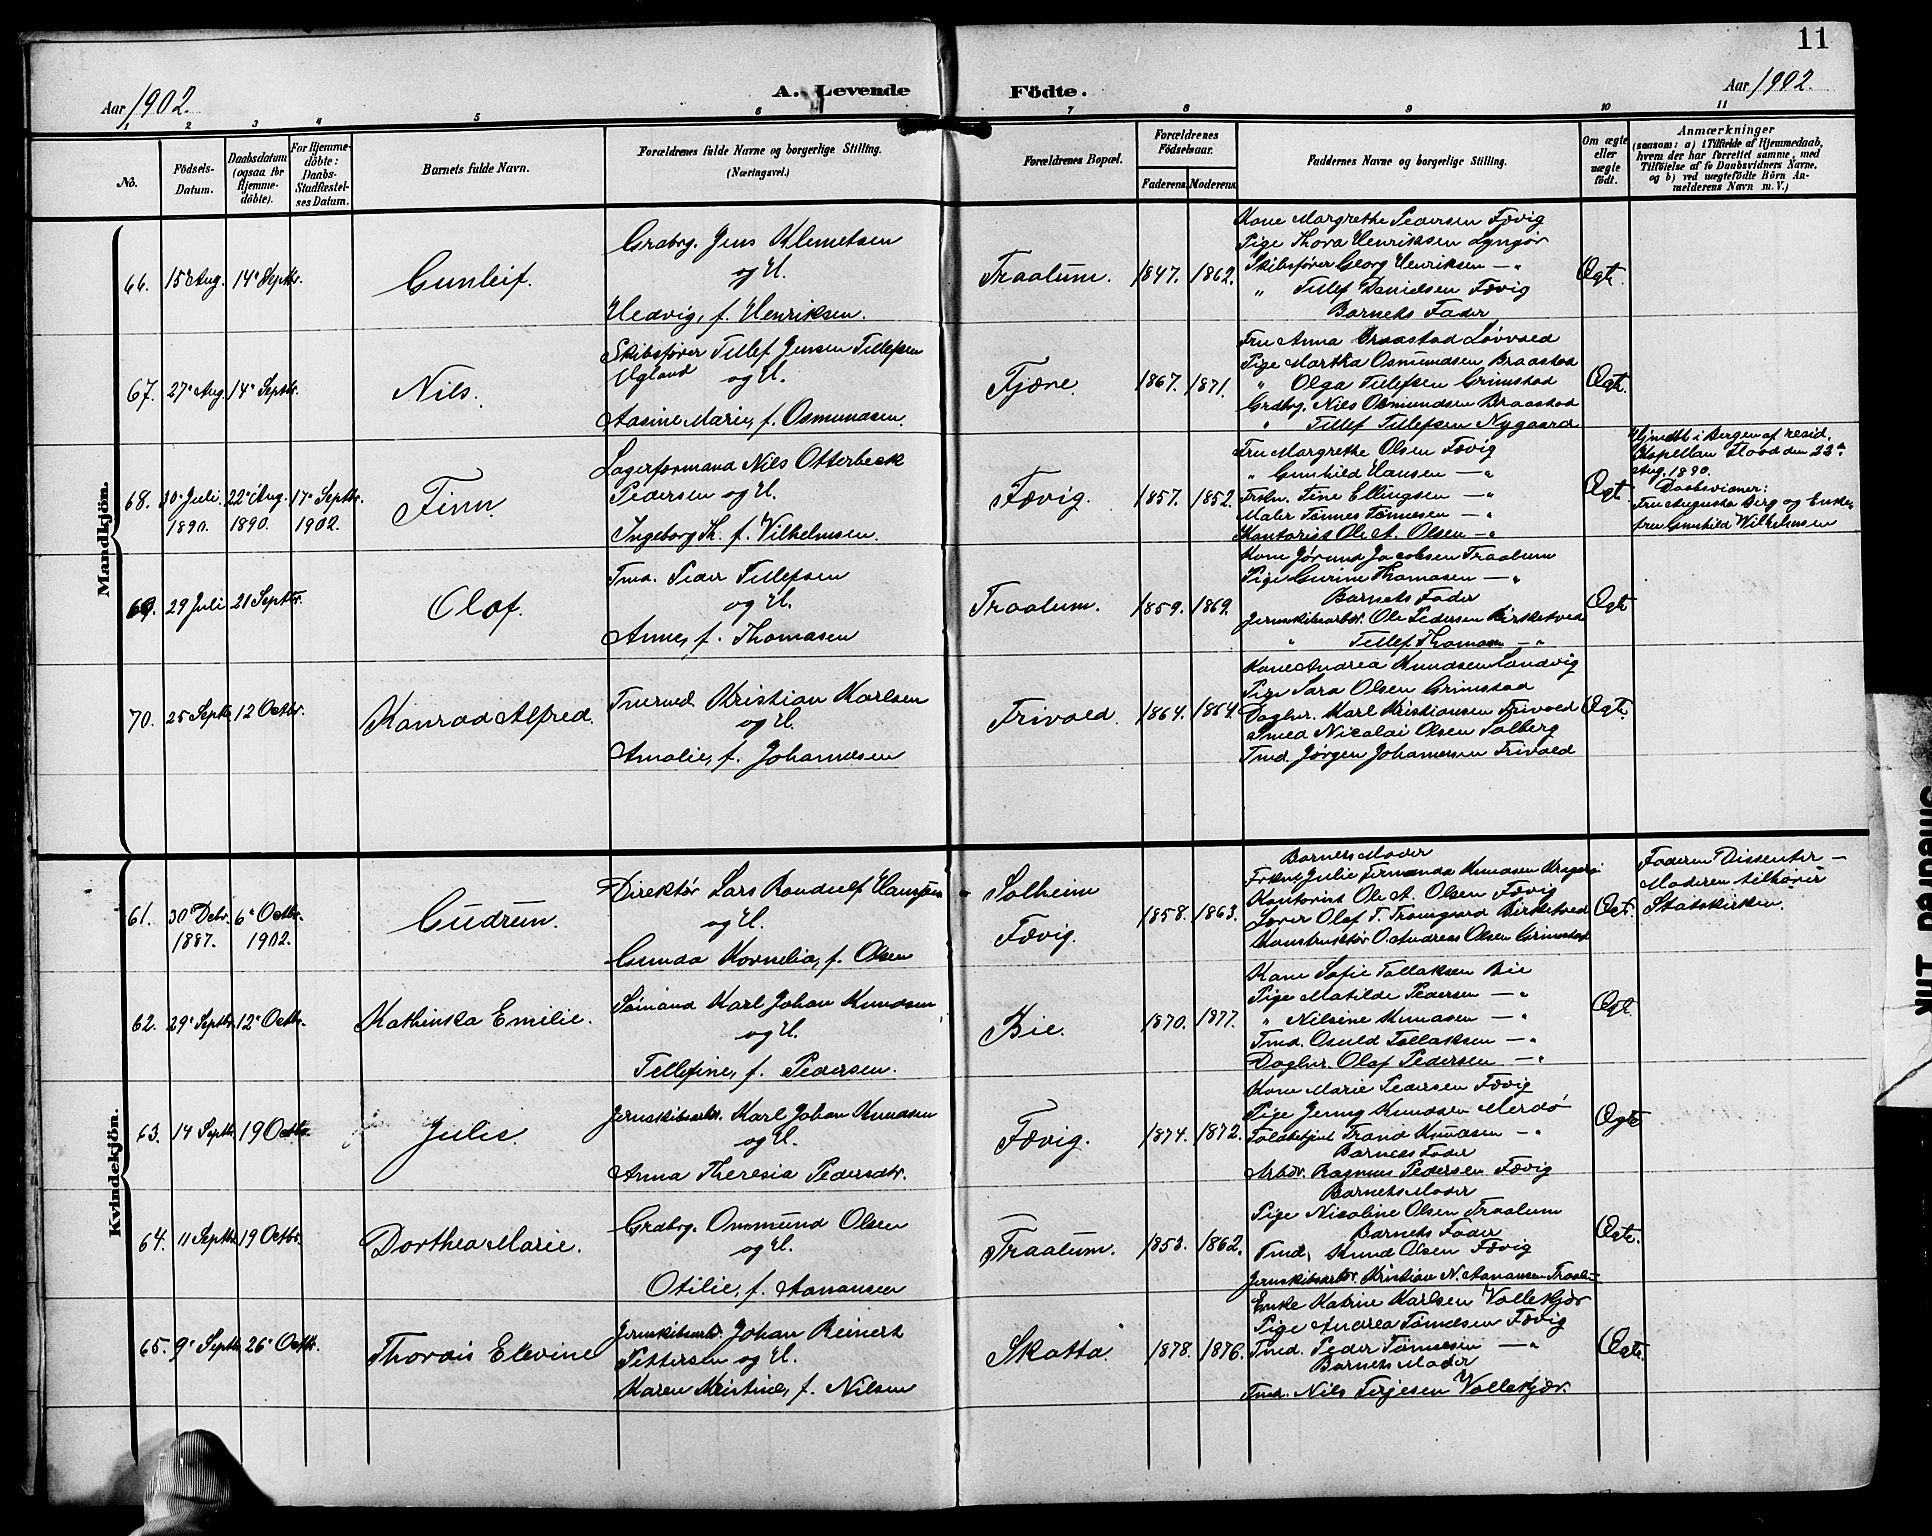 11
Aar 1902.
A. Levende Födte.
Aar 1902.
1 2 3 4 5 6 7 8 9 10 11
No.
Födsels-Datum.
Daabsdatum (ogsaa for Hjemmedöbte).
For Hjemmedöbte: Daabs-Stadfæstelses Datum.
Barnets fulde Navn.
Forældrenes fulde Navne og borgerlige Stilling.
(Næringsvei.)
Forældrenes Bopæl.
Forældrenes Födselsaar.
Faderens Moderens.
Faddernes Navne og borgerlige Stilling.
Om ægte eller uægte födt.
Anmærkninger
(saasom: a) i Tilfælde af Hjemmedaab,
hvem der har forrettet samme, med
Tilföielse af to Daabsvidners Navne,
og b) ved uægtefödte Börn An-
melderens Navn m. V.)
Mandkjön.
66. 15 Aug. 14 Septbr. Gunleif.
Graabrg. Jens Klemetsen
og H.
Hedvig, f. Henriksen.
Traalum. 1847. 1862.
Kone Margrethe Pedersen Fævig
Pige Thora Henriksen Lyngör
Skibsfører Georg Henriksen — "
" Tellef Danielsen Fævig
Barnets Fader
Ægte.
67. 27 Aug. 14 Septbr. Nils.
Skibsfører Tellef Jensen Tellefsen
Ugland og H.
Aasine Marie, f. Osmundsen.
Fjære. 1867. 1871.
Fru Anna Braastad Løvvold
Pige Martha Osmundsen Braastad
" Olga Tellefsen Grimstad
Grdbrg. Nils Osmundsen Braastad
" Tellef Tellefsen Nygaard
Ægte.
68. 30 Juli 1890. 22 Aug. 1890. 17 Septbr. 1902. Finn.
Lagerformand Nils Otterbeck
Pedersen og H.
Ingeborg Th. f. Vilhelmsen.
Fævig. 1857. 1852.
Fru Margrethe Olsen Fævig
" Gunhild Hansen — "
Frkn. Tine Ellingsen — "
Maler Tønnes Tønnesen — "
Kontorist Ole A. Olsen — "
Ægte
Hjmdbt i Bergen af resid.
Kapellan Flood den 22
Aug. 1890.
Daabsvidner:
Fru Augusta Berg og Enke-
fru Gunhild Wilhelmsen
69. 29 Juli 21 Septbr. Olaf.
Tmd. Peder Tellefsen
og H.
Anne, f. Thomasen
Traalum. 1859. 1869.
Kone Jørund Jacobsen Traalum
Pige Gurine Thomasen — "
Barnets Fader
Jernskibsarbr. Ole Pedersen Birketved
" Tellef Thomasen — "
Ægte
70. 25 Septbr. 12 Octbr. Konrad Alfred.
Tmrmd Kristian Karlsen
og H.
Amalie, f. Johannesen
Frivold. 1864. 1864.
Kone Andrea Knudsen Sandvig
Pige Sara Olsen Grimstad
Daglnr. Karl Kristiansen Frivold
Smed Nicolai Olsen Solberg
Tmd. Jørgen Johannessen Frivold
Ægte.
Kvindekjön.
61. 30 Debr. 1887. 6 Octbr. 1902. Gudrun.
Direktør Lars Randulf Hansen
og H.
Gunda Kornelia, f. Olsen
Solheim
Fævig.
1858. 1863.
Barnets Moder
Frknt Julie Fernanda Knudsen Kragerø
Kontorist Ole A. Olsen Fævig
Lærer Olaf T. Tromsgaard Birketved
Konstruktør O. Andreas Olsen Grimstad
Ægte.
Faderen Dissenter —
Moderen tilhører
Statskirken.
62. 29 Septbr. 12 Octbr. Kathinka Emilie.
Sømand Karl Johan Knudsen
og H.
Tellefine, f. Pedersen.
Bie. 1870. 1877.
Kone Sofie Tallaksen Bie
Pige Matilde Pedersen — "
" Nilsine Knudsen — "
Tmd. Osuld Tallaksen — "
Daglnr. Olaf Pedersen — "
Ægte.
63. 14 Septbr. 19 Octbr. Julie.
Jernskibsarbr. Karl Johan Knudsen
og H.
Anna Theresia Pedersdtr.
Fævig. 1874. 1872.
Kone Marie Pedersen Fævig
Pige Jenny Knudsen Merdø
Toldbetjent Trand Knudsen — "
Barnets Fader
Arbdr. Rasmus Pedersen Fævig
Ægte
64. 11 Septbr. 19 Octbr. Dorthea Marie.
Grdbrg. Ommund Olsen
og H.
Otilie, f. Aanansen
Traalum. 1853. 1862.
Barnets Moder
Pige Nicoline Olsen Traalum
Barnets Fader
Tmd. Knud Olsen Fævig
Jernskibsarbdr. Kristian N. Aanansen Traal—
Ægte.
65. 9 Septbr. 26 Octbr. Thordis Elevine
Jernskibsarb. Johan Reinert
Pettersen og H.
Karen Kristine, f. Nilsen
Skotta. 1878. 1876.
Enke Katrine Karlsen Vollekjær
Pige Andrea Tønnesen Fævig
Tmd. Peder Tønnesen — "
Barnets Moder
Tmd. Nils Terjesen Vollekjær.
Ægte.